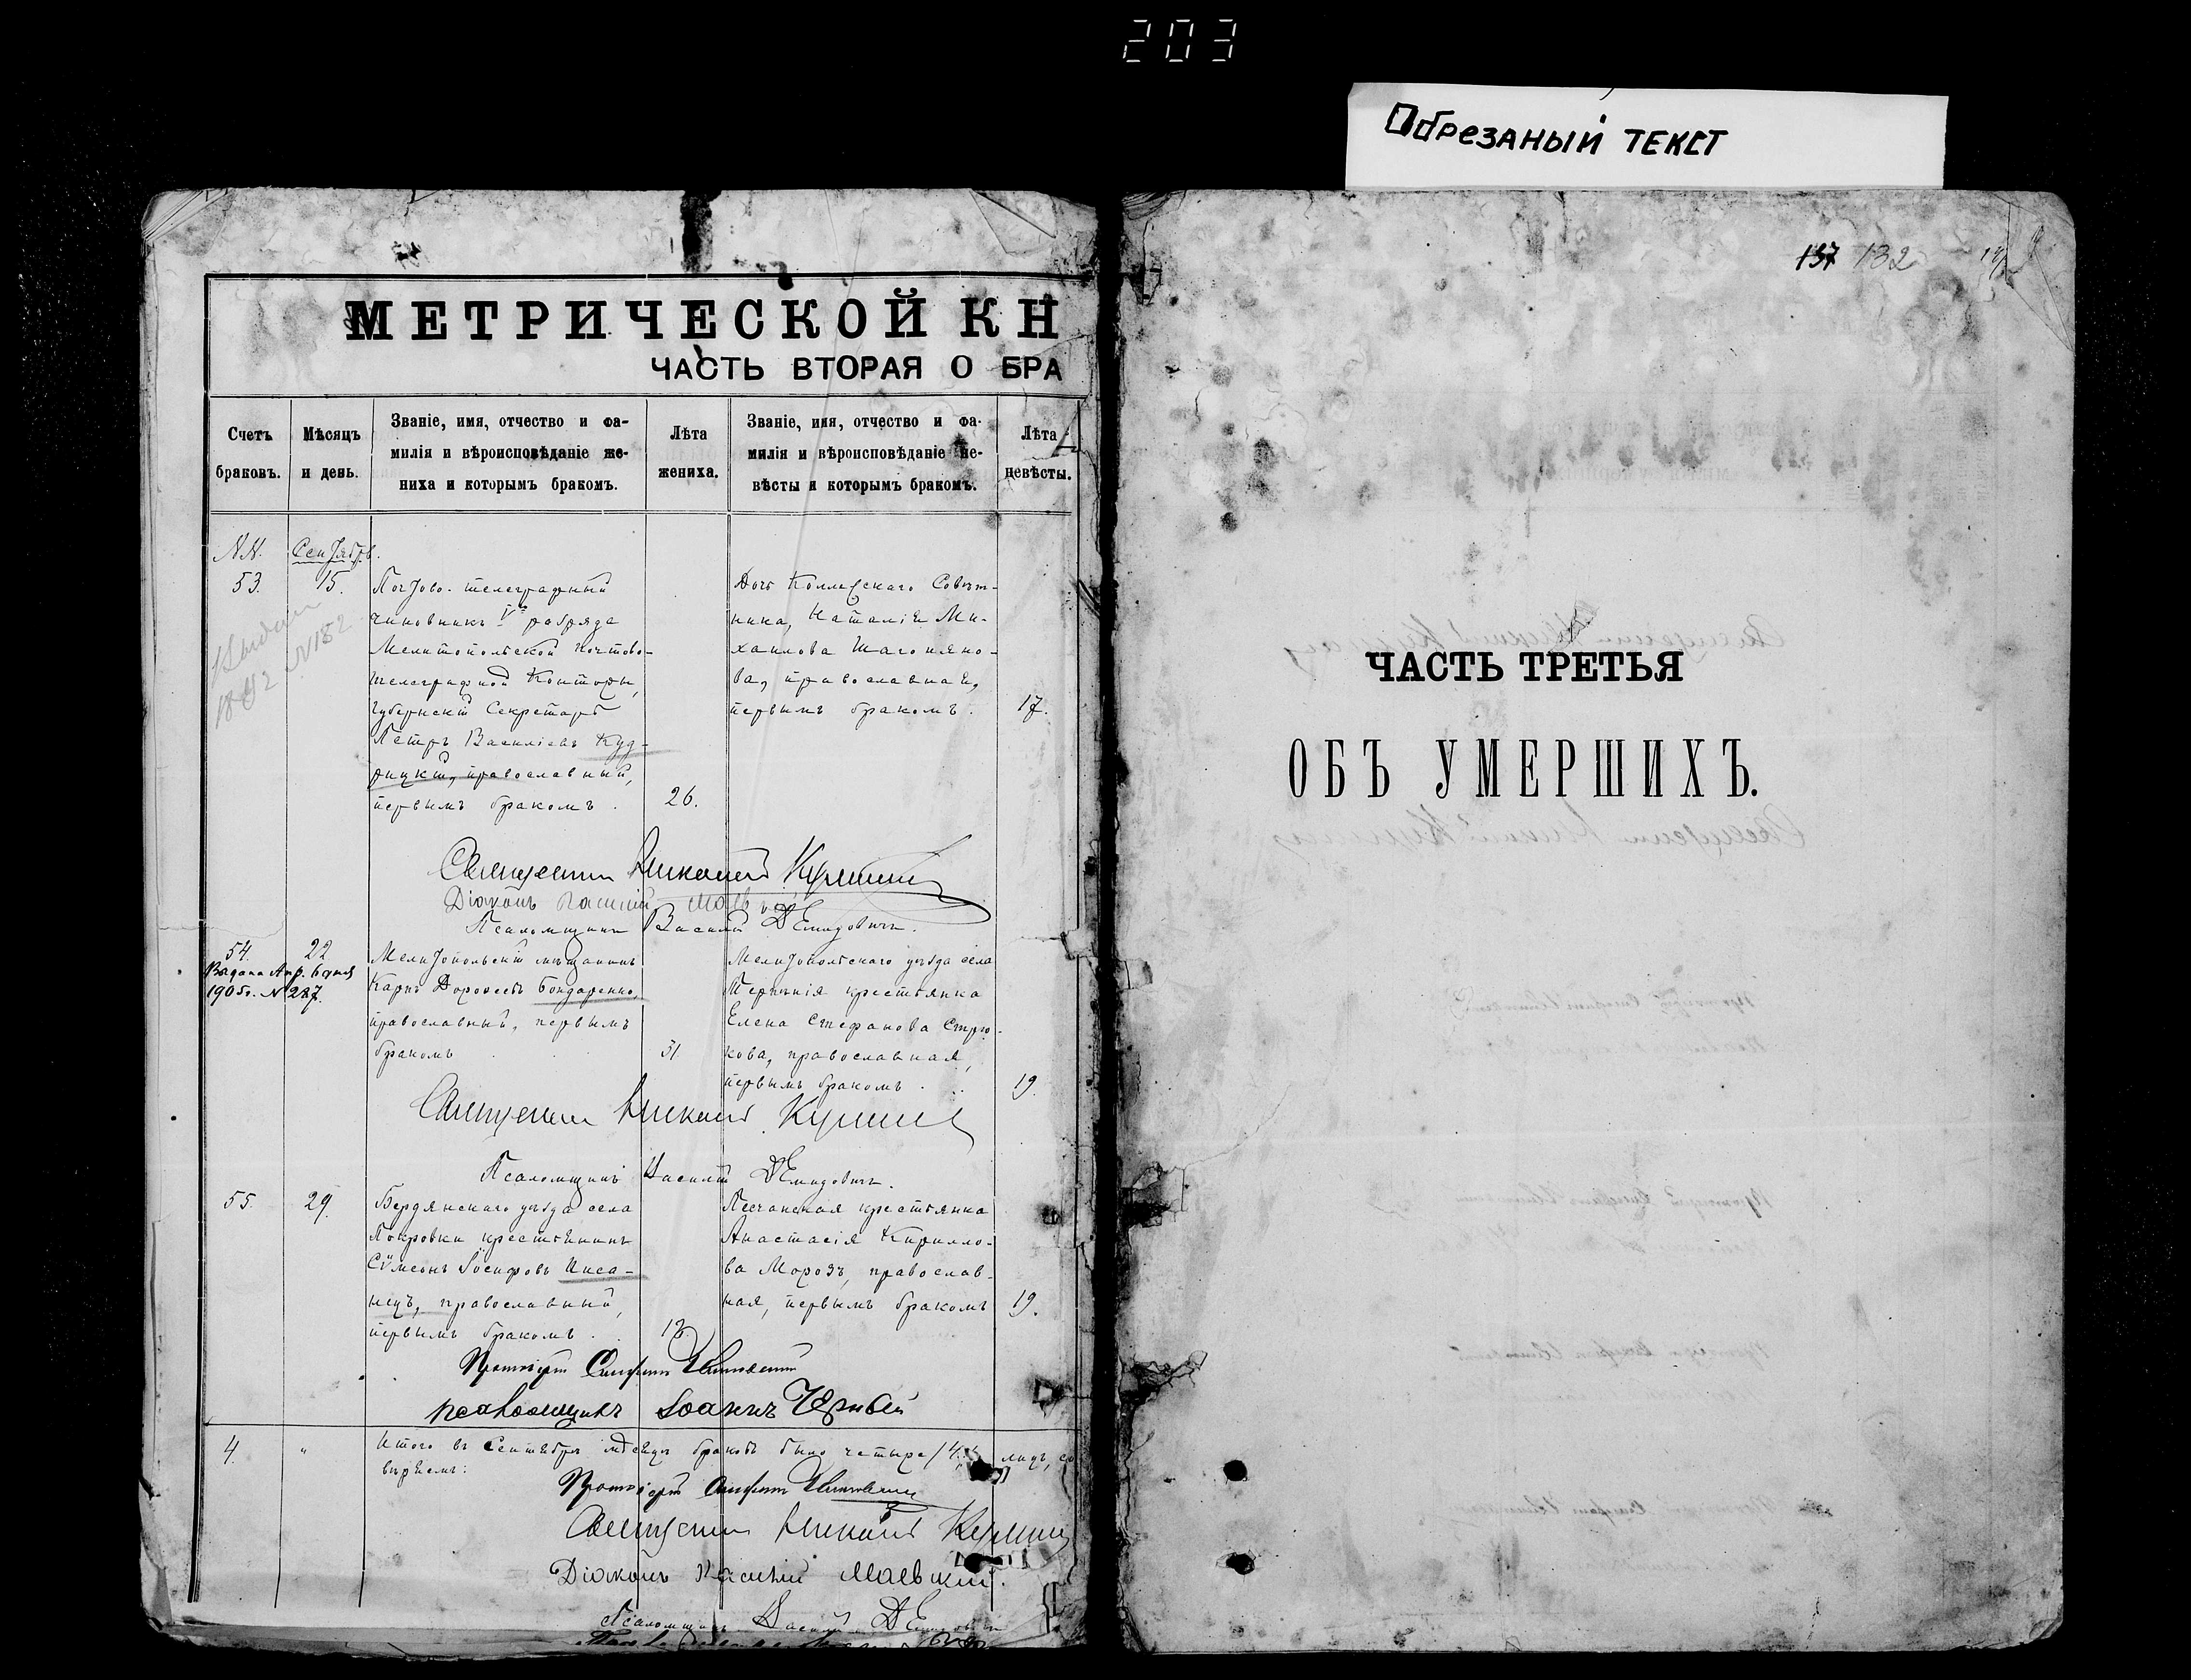 203
Обрезаный текст
МЕТРИЧЕСКОЙ КН
ЧАСТЬ ВТОРАЯ О БРА
Счетъ браковъ.
Мѣсяцъ и день.
Званіе, имя, отчество и фа-
милія и вѣроисповѣданіе же-
ниха и которымъ бракомъ.
Лѣта жениха.
Званіе, имя, отчество и фа-
милія и вѣроисповѣданіе не-
вѣсты и которымъ бракомъ.
Лѣта невѣсты.
NN. Сентябрь.
53. 15.
Почтово-телеграфный
чиновникъ V разряда
Мелитопольской почтово-
телеграфной Конторы,
Губернскій Секретарь
Петръ Василіевъ Куд-
рицкій, православный,
первымъ бракомъ.
26.
Дочь Коллежскаго Совѣт-
ника, Наталія Ми-
хаилова Шагоняно-
ва, православная,
первымъ бракомъ.
17.
Священникъ Николай
Діаконъ Василій Маевскій
Псаломщикъ Василій Демидовичъ.
54. 22
Выдана Апр. 6 дня
1905г. N 287.
Мелитопольскій мѣщанинъ
Карпъ Дороѳеевъ Бондаренко,
православный, первымъ
бракомъ
31
Мелитопольскаго уѣзда села
Терпѣнія крестьянка
Елена Стефанова Стрю-
кова, православная,
первымъ бракомъ.
19.
Священникъ Николай
Псаломщикъ Василій Демидовичъ.
55. 29.
Бердянскаго уѣзда села
Покровки крестьянинъ
Сѵмеонъ Іосифовъ Писа-
нецъ, православный,
первымъ бракомъ.
18.
Песчанская крестьянка
Анастасія Кирилло-
ва Морозъ, православ-
ная, первымъ бракомъ
19.
Протоіерей
псаломщикъ Іоаннъ
4. "
Итого въ Сентябрѣ мѣсяцѣ браковъ было четыре /4/
Протоіерей
Священникъ Николай
Діаконъ Василій Маевскій.
Псаломщикъ Василій
137 132
ЧАСТЬ ТРЕТЬЯ
ОБЪ УМЕРШИХЪ.